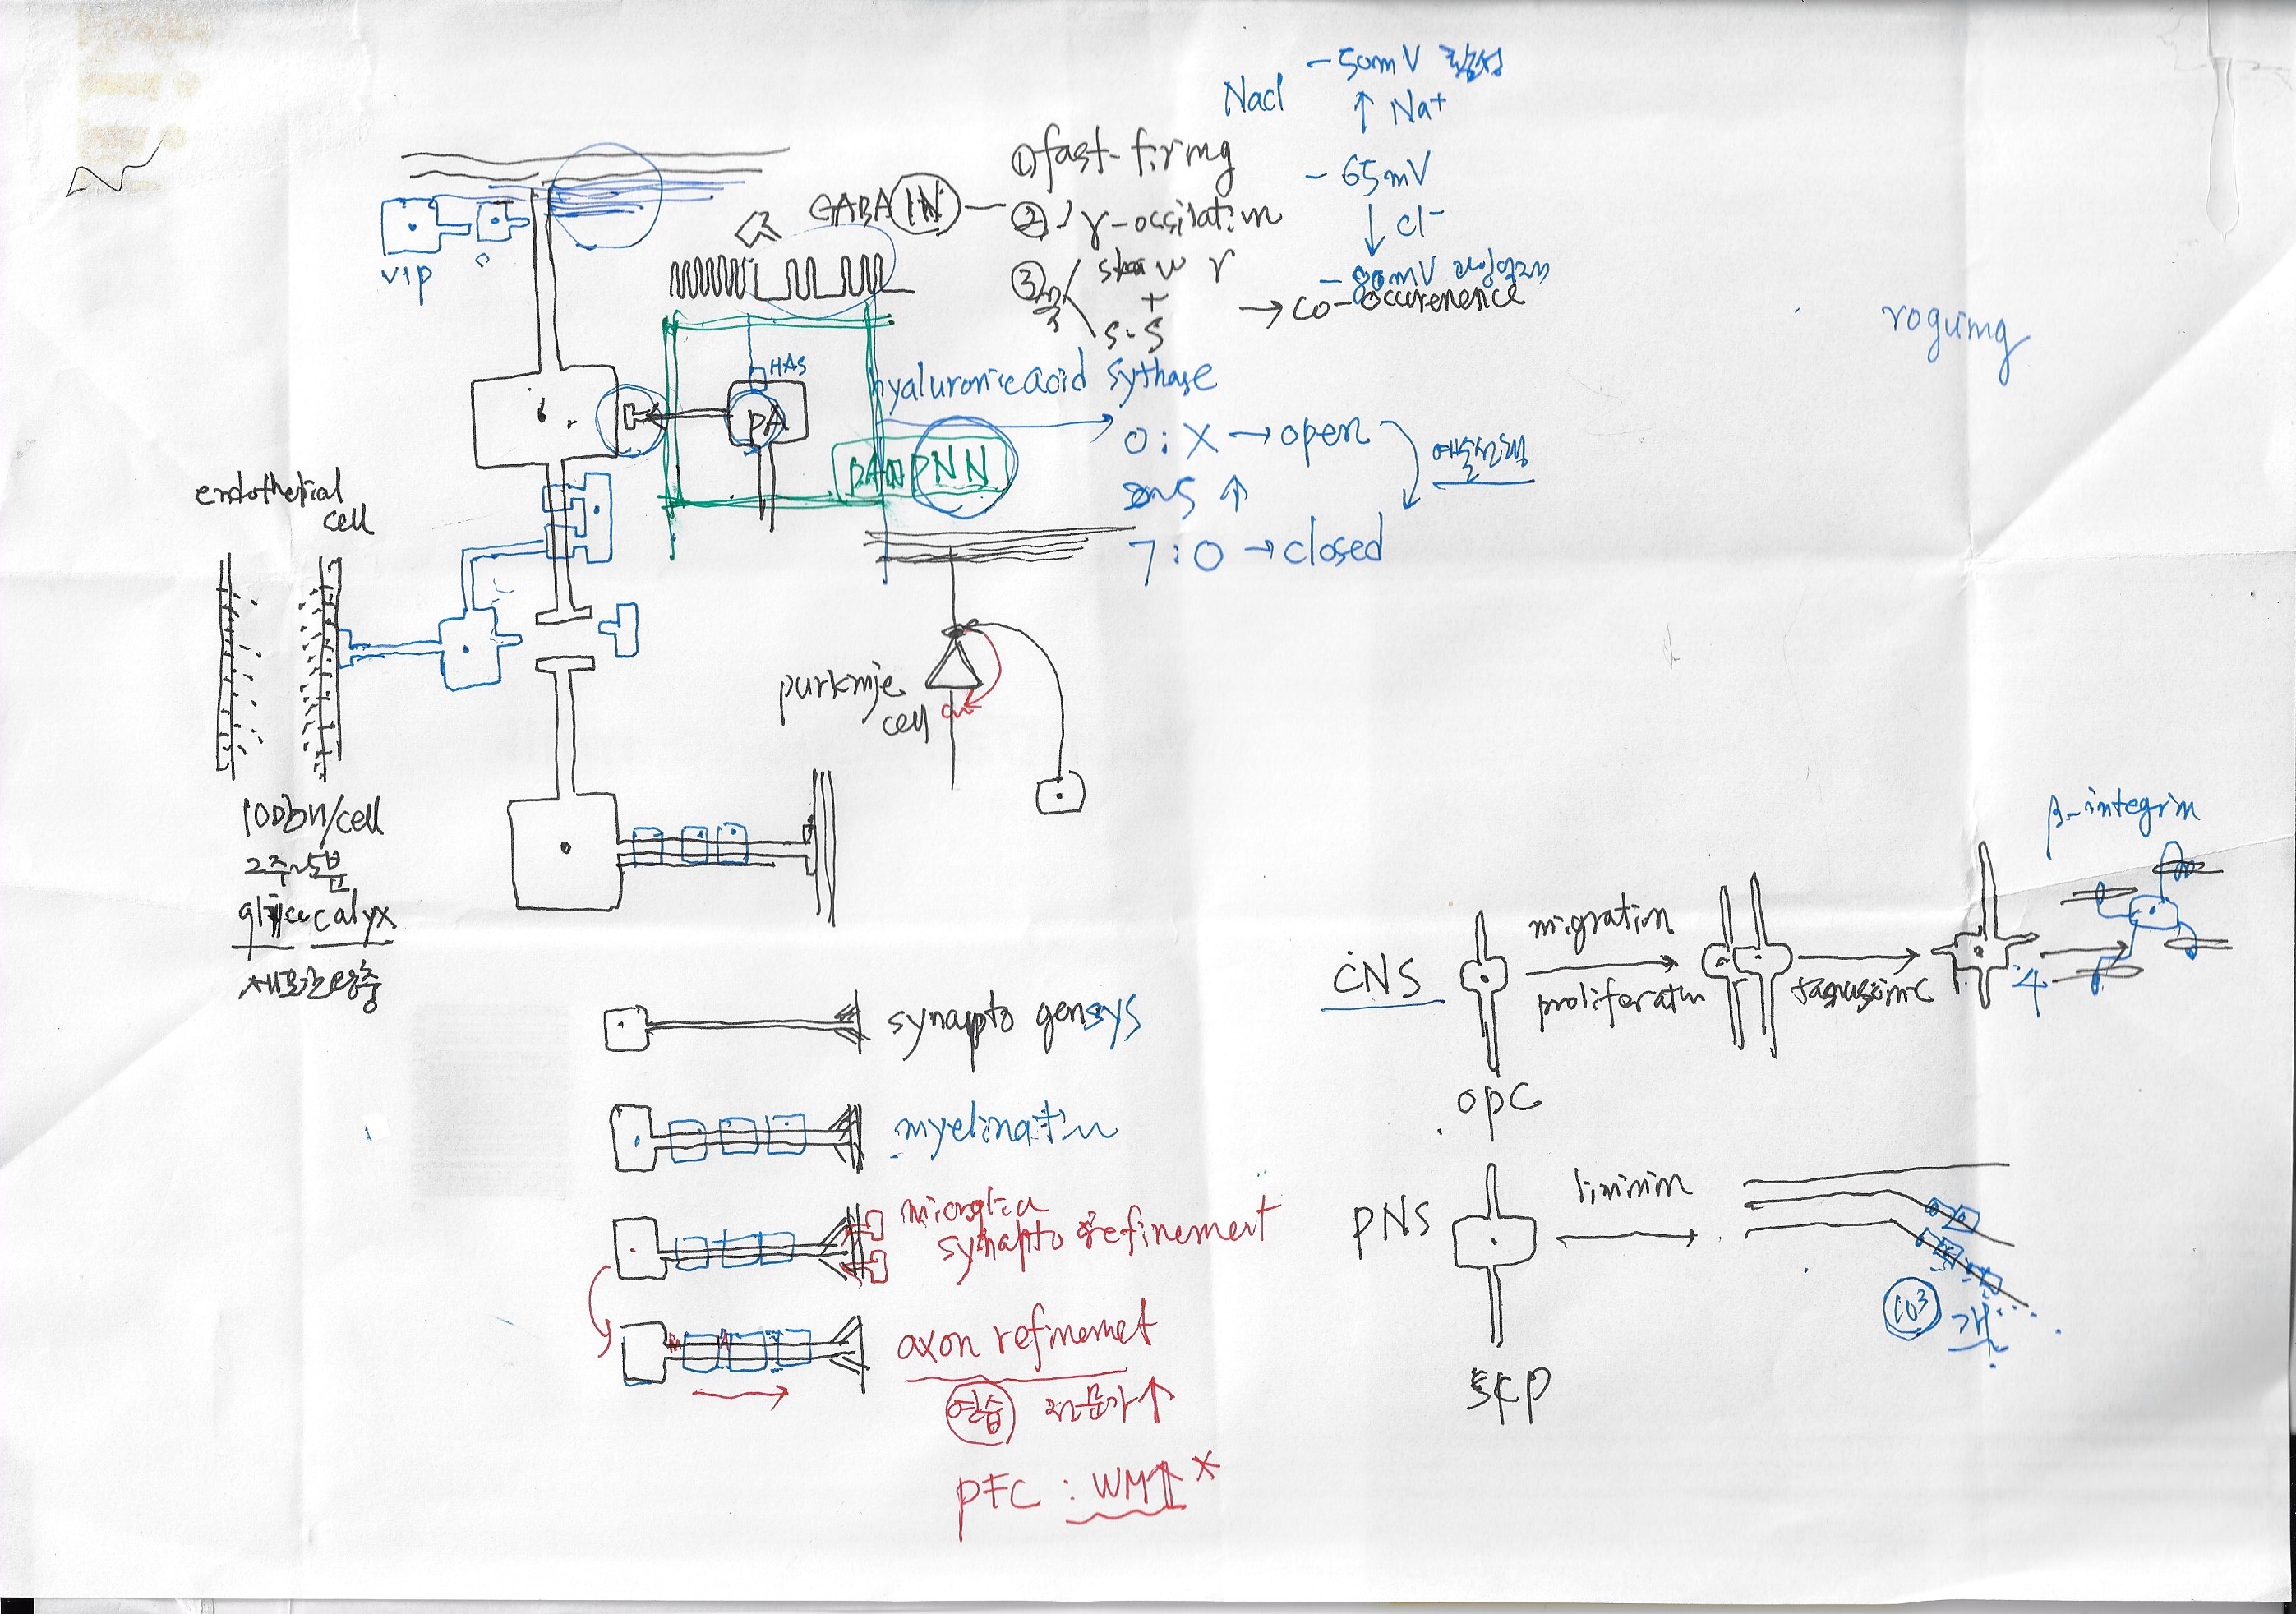 Nacl
-50mV 활성
↑ Na+
-65mV
↓ cl-
-80mV
GABA IN
① fast-firing
② γ-occilation
③
slow γ
+
s-s
→ co-occurenence
roguing
vip
HAS
hyaluronic acid sythase
PA
PNN
0 : X → open
예술신경
↑
7 : 0 → closed
endothelial
cell
purkinje
cell
100bn/cell
2주~5분
calyx
synapto gensys
myelination
microglia
synapto refinement
axon refinemet
연습 전문가↑
PFC : WM↑ *
β-integrin
CNS
migration
proliferation
4
OPC
PNS
liminin
10³
개
SCP